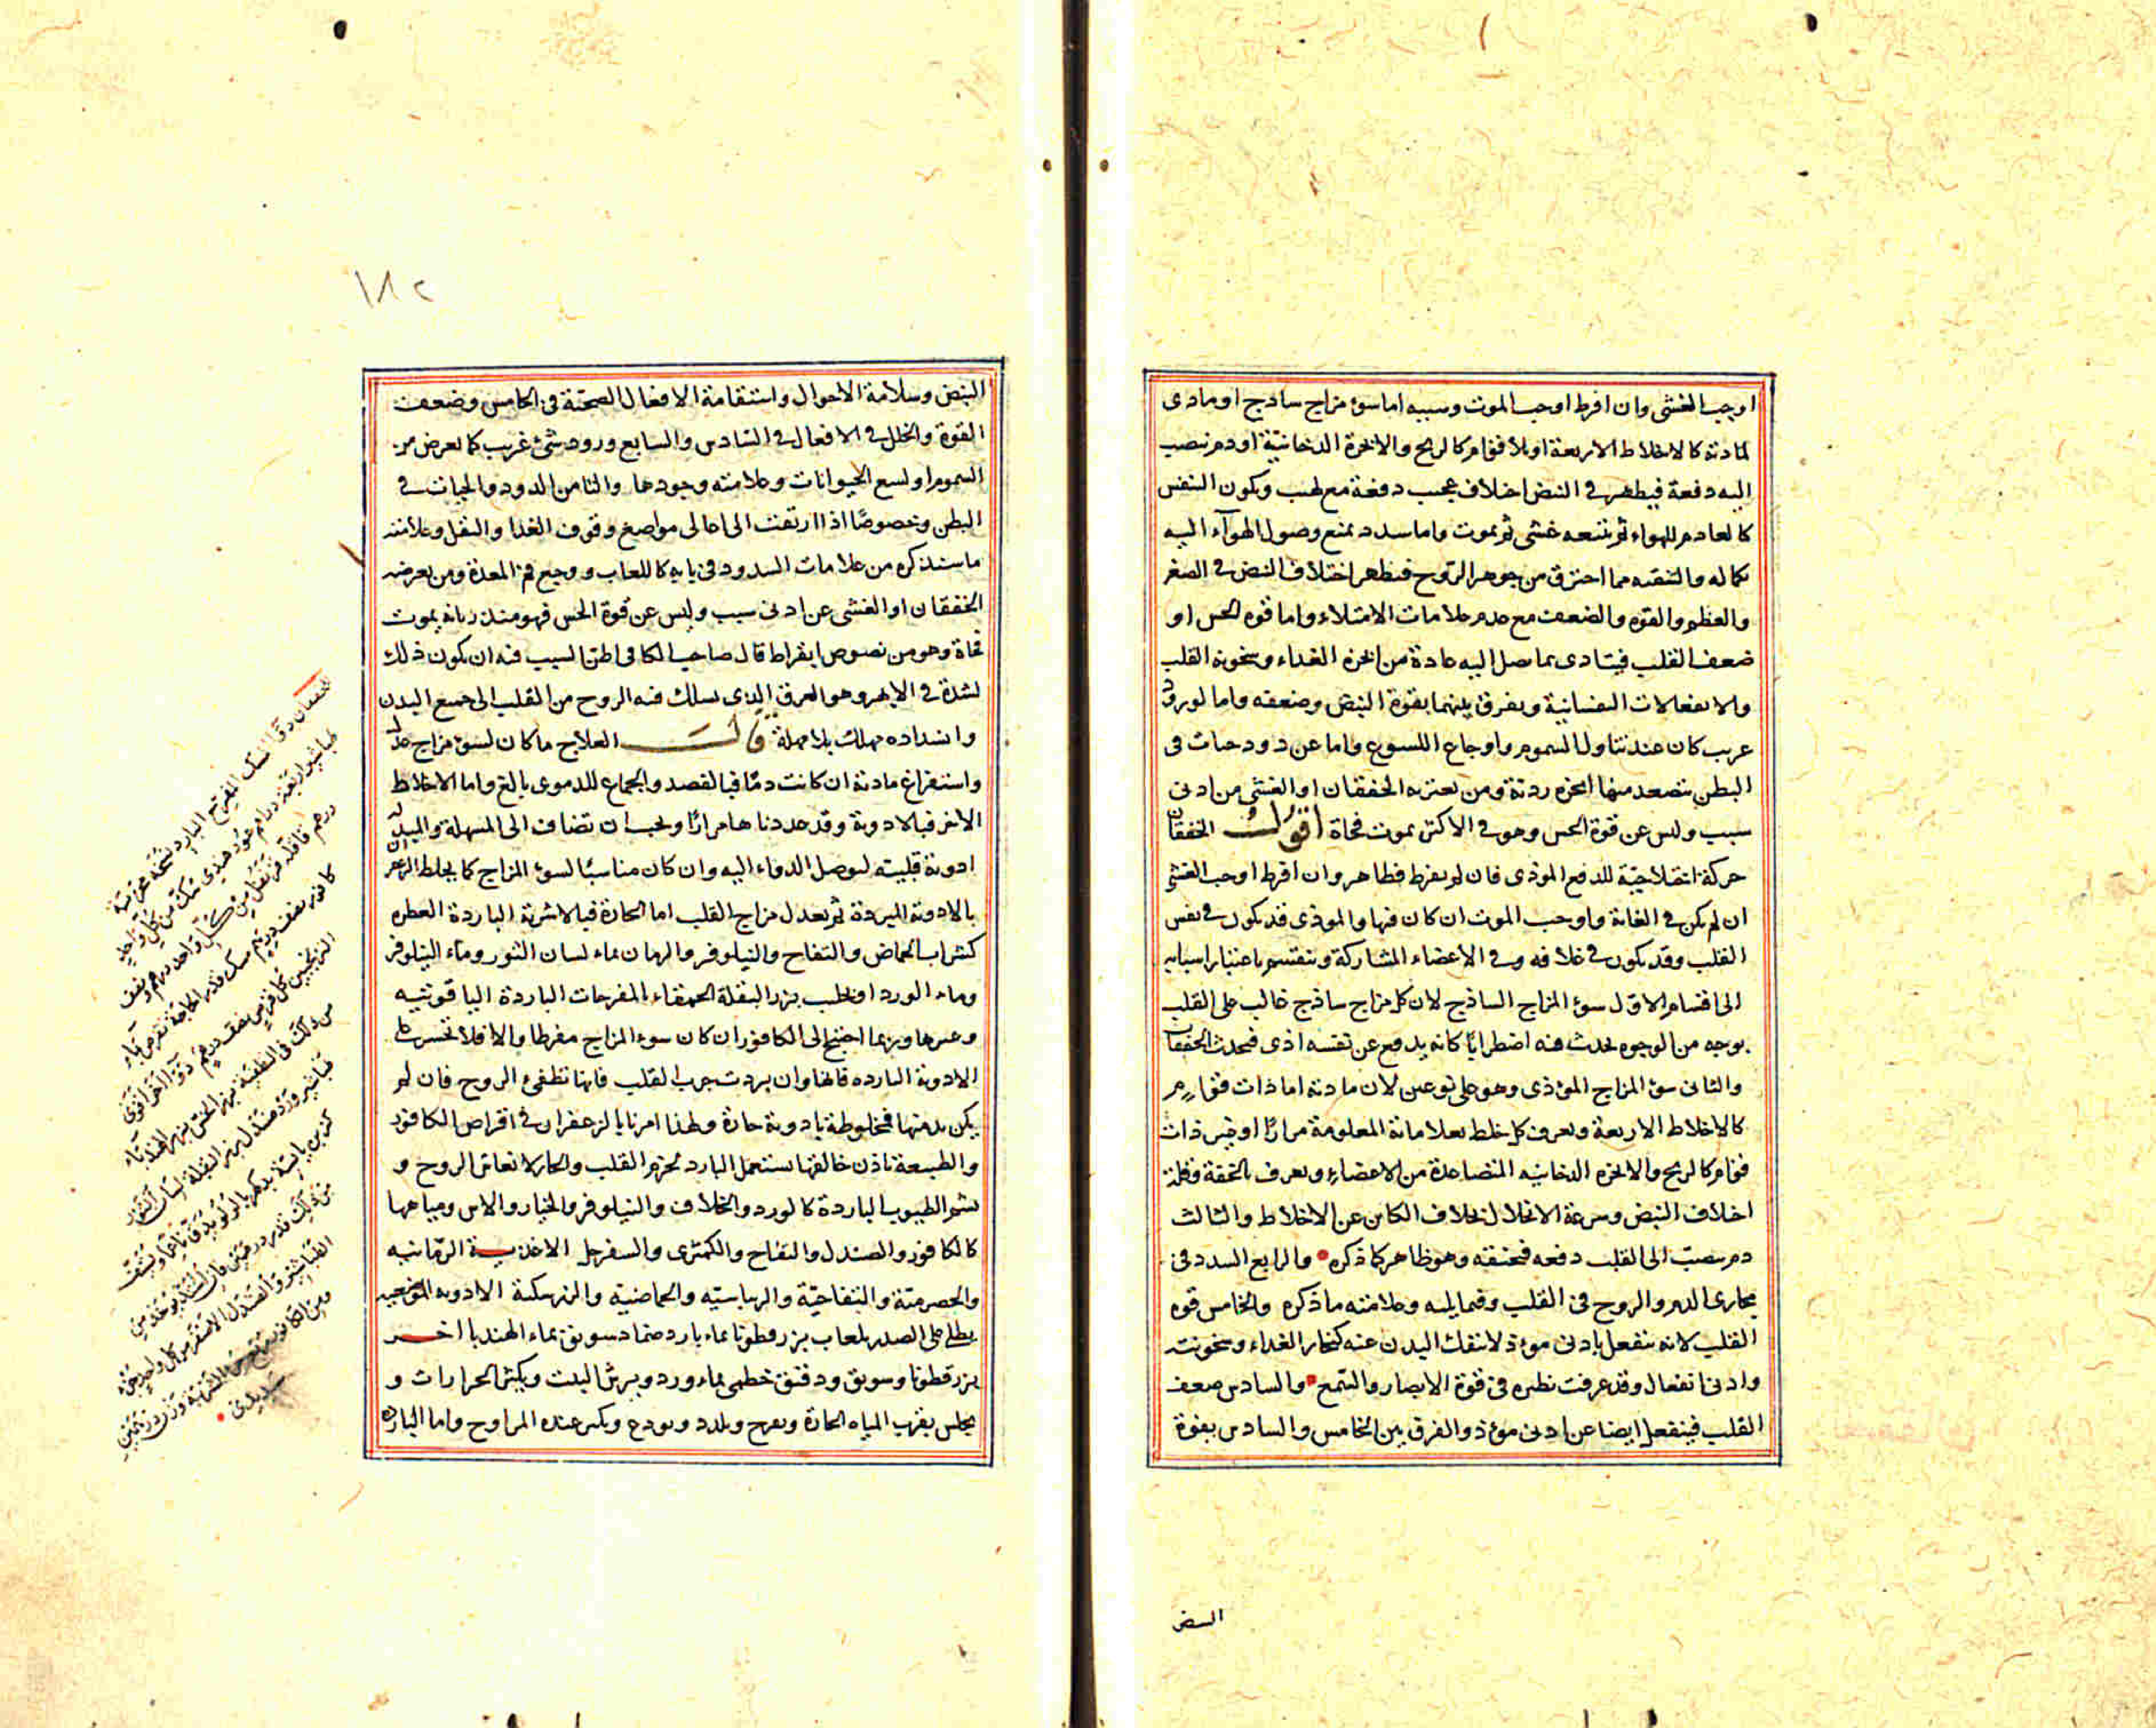 اوجب الغشى وان افرط اوجب الموت وسببه اما سوء مزاج ساذج او مادى
لمادته كالاخلاط الاربعة او بلا قوام كالريح والابخرة الدخانية او دم ينصب
اليه دفعة فيظهر فى النبض اختلاف عجيب دفعة مع لهب ويكون النفس
كالعادم للهواء ثم يتبعه غشى ثم يموت واما سدد يمنع وصول الهوآء اليه
بكماله والتنقيه مما احترق من جوهر الروح فيظهر اختلاف النبض فى الصغر
والعظم والقوه والضعف مع عدم علامات الامتلاء واما قوه الحس او
ضعف القلب فيتادى بما يصل اليه عادة من ابخره الغداء وسخونة القلب
والانفعالات النفسانية ويفرق بينهما بقوة النبض وضعفه واما لورود
غريب كان عند تناول السموم واوجاع اللسوع واما عن دود حيات فى
البطن يتصعد منها ابخره ردئة ومن يعتريه الخفقان او الغشى من ادنى
سبب وليس عن قوة الحس وهو فى الاكثر يموت فجاة اقول الخفقان
حركة اختلاجية للدفع الموذى فان لم يفرط فظاهر وان افرط اوجب الغشى
ان لم يكن فى الغاية واوجب الموت ان كان فيها والموذى قد يكون فى نفس
القلب وقد يكون فى غلافه وفى الاعضاء المشاركة وينقسم باعتبار اسبابه
الى اقسام الاول سوء المزاج الساذج لان كل مزاج ساذج غالب على القلب
بوجه من الوجوه يحدث فيه اضطرابًا كانه يدفع عن نفسه اذى فيحدث الخفقان
والثانى سوء المزاج الموذى وهو على نوعين لان مادته اما ذات قوام
كالاخلاط الاربعة ويعرف كل خلط بعلاماته المعلومة مرارًا او غير ذات
قوام كالريح والابخره الدخانيه المتصاعدة من الاعضاء ويعرف بالخفة وقلة
اختلاف النبض وسرعة الانحلال بخلاف الكائن عن الاخلاط والثالث
دم ينصب الى القلب دفعه فيخنقه وهو ظاهر كما ذكره والرابع السدد فى
مجارى الدم والروح فى القلب وفيما يليه وعلامته ما ذكره والخامس قوه
القلب لانه ينفعل بادنى موءذ لا ينفك البدن عنه كبخار الغداء وسخونته
وادنى انفعال وقد عرفت نظيره فى قوة الابصار والسمع والسادس ضعف
القلب فينفعل ايضا عن ادنى موءذ والفرق بين الخامس والسادس بقوة
النبض
١٨٢
النبض وسلامة الاحوال واستقامة الافعال الصحية فى الخامس وضعف
القوة والخلل فى الافعال فى السادس والسابع ورود شىء غريب كما يعرض من
السموم او لسع الحيوانات وعلامته وجودها والثامن الدود والحيات فى
البطن وخصوصًا اذا ارتقت الى اعالى مواضع وقوف الغدا والثفل وعلامته
ما سنذكره من علامات الدود فى بابه كاللعاب ووجع فم المعدة ومن يعرضه
الخفقان او الغشى عن ادنى سبب وليس عن قوة الحس فهو منذر بانه يموت
فجاة وهو من نصوص ابقراط قال صاحب الكافى اظن السبب فيه ان يكون ذلك
لشدة فى الابهر وهو العرق الذى يسلك فيه الروح من القلب الى جميع البدن
وانسداده مهلك بلا مهلة قالـــ العلاج ما كان لسوء مزاج عدل
واستفراغ مادته ان كانت دمًا فبالفصد والجماع للدموى بالغ واما الاخلاط
الاخر فبالادوية وقد عددناها مرارًا ويجب ان تضاف الى المسهلة والمبدلة
ادوية قلبيته لتوصل الدواء اليه وان كان مناسبًا لسوء المزاج كما يخلط الزعفران
بالادوية المبردة ثم يعدل مزاج القلب اما الحارة فبالاشربة الباردة العطره
كشراب الحماض والتفاح والنيلوفر والرمان بماء لسان الثور وماء النيلوفر
وماء الورد او يحلب بزر البقلة الحمقاء بالمفرحات الباردة الياقوتيه
وغيرها وربما احتيج الى الكافور ان كان سوء المزاج مفرطا والا فلا تجسر على
الادوية البارده فانها وان بردت جرم القلب فانها تطفئ الروح فان لم
يكن بد منها فمخلوطة بادوية حارة ولهذا امرنا بالزعفران فى اقراص الكافور
والطبيعة باذن خالقها تستعمل البارد لجرم القلب والحار لانعاش الروح و
شم الطيوب الباردة كالورد والخلاف والنيلوفر والخيار والاس ومياهها
كالكافور والصندل والتفاح والكمثرى والسفرجل الاغذية الرمانيه
والحصرمية والتفاحية والريباسيه والحماضية والزرشكية الادويه الموضعيه
يطلى على الصدر بلعاب بزر قطونا بماء بارد ضماد سويق بماء الهندبا اخـر
بزر قطونا وسويق ودقيق خطمى بماء ورد ويرش البيت ويكثر الجرارات و
يجلس بقرب المياه الجارة ويفرح ويلدد ويودع ويكثر عنده المراوح واما البارده
للخفقان دوآ المسك المفرح البارد نسخة مجربة
طباشير اربعة درام عود هندى مسك من كل واحد
درهم قاقله قرنفل من كل واحد درهم ونصف
كافور نصف درهم مسك قدر الحاجة تقرص بماء
الترنجبين كل قرص نصف درهم